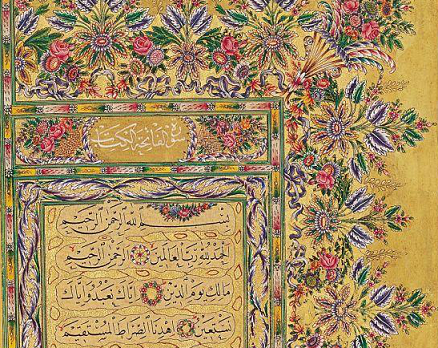 سورة فاتحة الكتاب
بسم الله الرحمن الرحيم
الحمد لله رب العالمين الرحمن الرحيم
مالك يوم الدين اياك نعبد واياك
نستعين اهدنا الصراط المستقيم